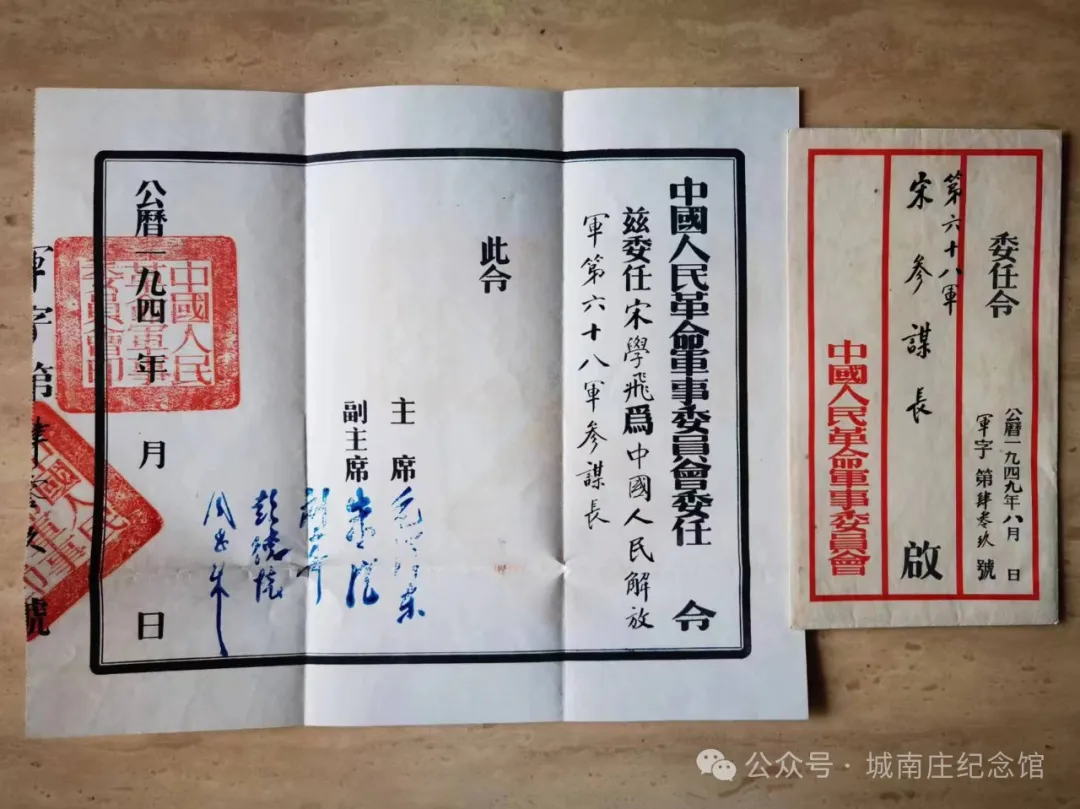 中國人民革命軍事委員會委任令
兹委任宋學飛爲中國人民解放
軍第六十八軍參謀長
此令
主席 毛澤東
副主席 朱德
劉少奇
彭德懷
周恩來
公曆一九四年月日
中國人民
革命軍事
委員會印
軍字第肆叁玖號
委任令
公曆一九四九年八月 日
軍字第肆叁玖號
第六十八軍
宋參謀長 啟
中國人民革命軍事委員會
公众号·城南庄纪念馆